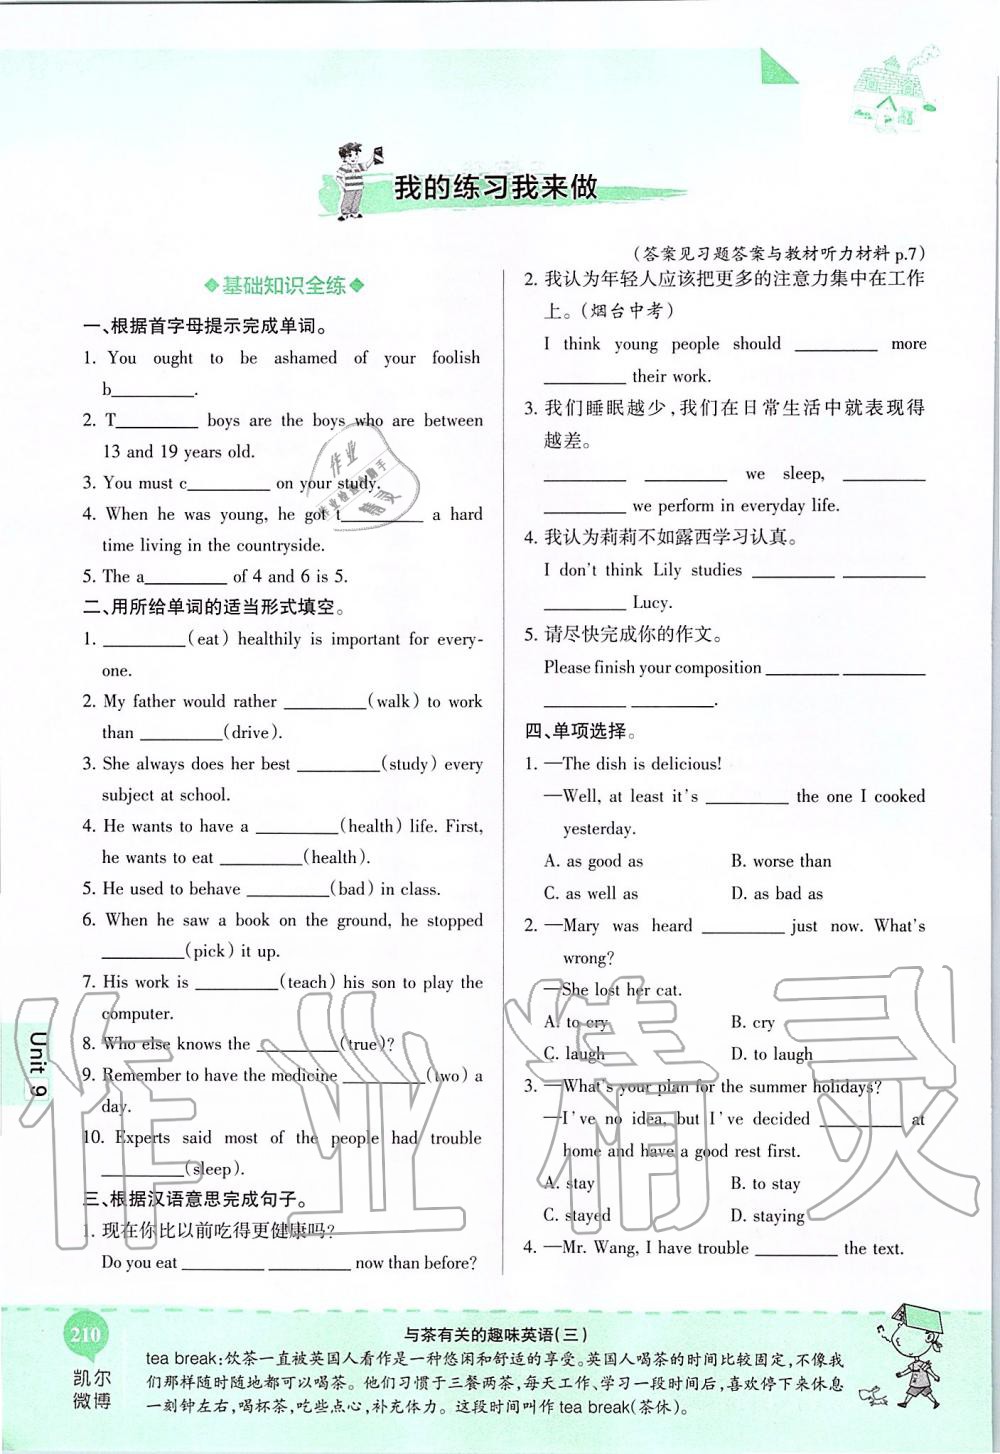 我的练习我来做
基础知识全练
一、根据首字母提示完成单词。
1. You ought to be ashamed of your foolish
b________.
2. T________ boys are the boys who are between
13 and 19 years old.
3. You must c________ on your study.
4. When he was young, he got t________ a hard
time living in the countryside.
5. The a________ of 4 and 6 is 5.
二、用所给单词的适当形式填空。
1. ________(eat) healthily is important for every-
one.
2. My father would rather ________(walk) to work
than ________(drive).
3. She always does her best ________(study) every
subject at school.
4. He wants to have a ________(health) life. First,
he wants to eat ________(health).
5. He used to behave ________(bad) in class.
6. When he saw a book on the ground, he stopped
________(pick) it up.
7. His work is ________(teach) his son to play the
computer.
8. Who else knows the ________(true)?
9. Remember to have the medicine ________(two) a
day.
10. Experts said most of the people had trouble
________(sleep).
三、根据汉语意思完成句子。
1. 现在你比以前吃得更健康吗?
Do you eat ________ ________ now than before?
(答案见习题答案与教材听力材料 p.7)
2. 我认为年轻人应该把更多的注意力集中在工作
上。(烟台中考)
I think young people should ________ more
________ their work.
3. 我们睡眠越少,我们在日常生活中就表现得
越差。
________ ________ we sleep, ________
________ we perform in everyday life.
4. 我认为莉莉不如露西学习认真。
I don't think Lily studies ________ ________
________ Lucy.
5. 请尽快完成你的作文。
Please finish your composition ________ ________
________ ________.
四、单项选择。
1. —The dish is delicious!
—Well, at least it's ________ the one I cooked
yesterday.
A. as good as B. worse than
C. as well as D. as bad as
2. —Mary was heard ________ just now. What's
wrong?
—She lost her cat.
A. to cry B. cry
C. laugh D. to laugh
3. —What's your plan for the summer holidays?
—I've no idea, but I've decided ________ at
home and have a good rest first.
A. stay B. to stay
C. stayed D. staying
4. —Mr. Wang, I have trouble ________ the text.
Unit 9
作业精灵
210
凯尔
微博
与茶有关的趣味英语(三)
tea break:饮茶一直被英国人看作是一种悠闲和舒适的享受。英国人喝茶的时间比较固定,不像我
们那样随时随地都可以喝茶。他们习惯于三餐两茶,每天工作、学习一段时间后,喜欢停下来休息
一刻钟左右,喝杯茶,吃些点心,补充体力。这段时间叫作 tea break(茶休)。